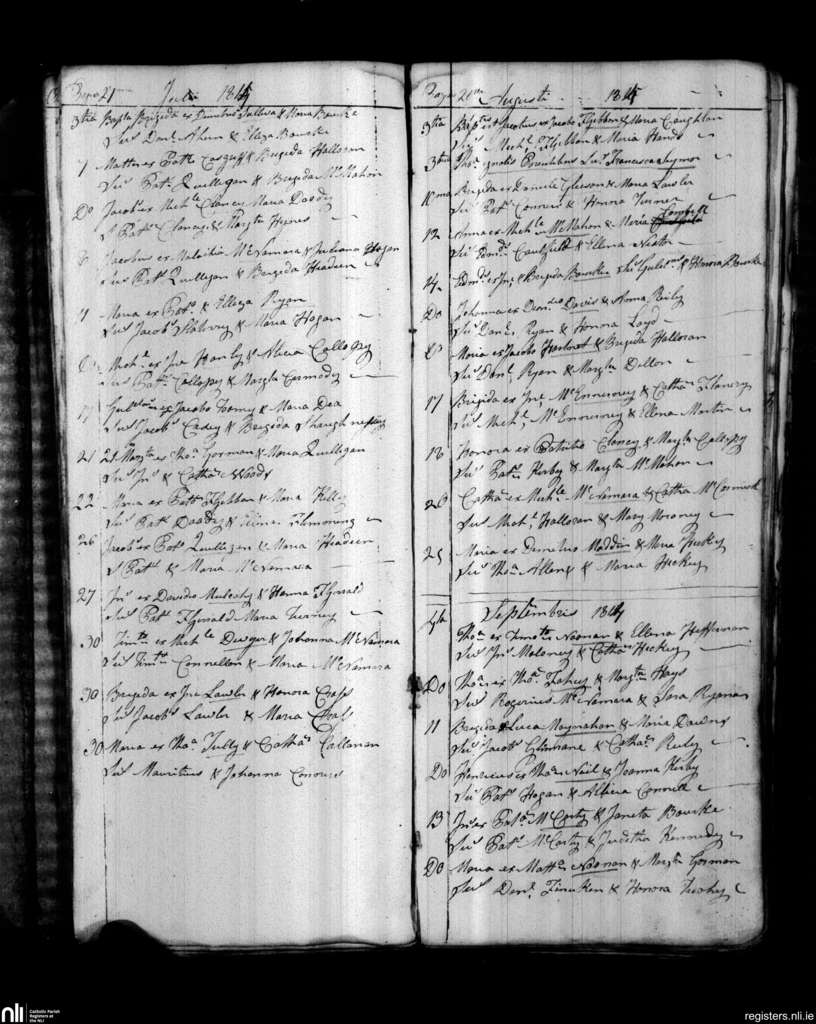 Page 21 Julii 1814
3tia Bapta Brigida ex Demetrio Sulliva & Maria Bourke
Sus Danl Ahern & Elleza Bourke
7 Matteus ex Patk & Brigida Halloran
Sus Patk Quilligan & Brigida McMahon
Do Jacobus ex Michle Clancy Maria Dooley
S Patk Clancy & Margta Hynes
Jacobus ex Malachia McNamara & Juliana Hogan
Sus Patk Quilligan & Brigida Headeen
11 Maria ex Patk & Elleza Ryan
Sus Jacobs & Maria Hogan
Michl ex Jne Hanly & Alicia Collopy
Sus Patk Collopy & Margta Carmody
17 ex Jacobo Toomy & Maria Dea
Sus Jacobs Casey & Brigida Shaughnessy
21 Margta ex Thoa Gorman & Maria Quilligan
Sus Jns & Catha Woods
22 Maria ex Patk Fgibbon & Maria Kelly
Sus Patk Dooley &
26 Jacobus ex Patk Quilligan & Maria Headeen
S Patk & Maria McNamara
27 Jns ex Davide Mulcahy & Hanna Fgerald
Sus Patk Fgerald Maria Tierney
30 Timths ex Michle Dwyer & Johanna McNamara
Sus Timths Connellan & Maria McNamara
30 Brigida ex Jne Lawler & Honora Cross
Sus Jacobs Lawler & Maria Cross
30 Maria ex Thoa Tully & Catha Callanan
Sus Mauritius & Johanna Conours
Page 21 Augusti 1814
3tia Bapts ex Jacobus ex Jacobo Fgibbon & Maria Coughlan
Sus Michl Fgibbon & Maria Hands
3tia Thos Ignotis Parentibus Sus Francisca Seymor
10ma Brigida ex Daniele Gleeson & Maria Lawler
Sus Patk & Honora Turner
12 Anna ex Michle McMahon & Maria
Sus Edmds Caulfield & Ellena Nestor
14 Edmds ex Jne & Brigida Bourke Sus & Honora Bourke
Do Johanna ex Davis & Anna Reily
Sus Danl Ryan & Honora Loyd
Do Maria ex Jacobo Hartnet & Brigida Halloran
Sus Danl Ryan & Margta Dillon
17 Brigida ex Jne McEnnerney & Catha Flanery
Sus Michl McEnnerney & Ellena Martin
18 Honora ex Patritio Clancy & Margta Collopy
Sus Patk Kirby & Margta McMahon
20 Catha ex Michle McNamara & Catha McCormick
Sus Michl Halloran & Mary Moroney
25 Maria ex Demetrio Madden & Maria Hickey
Sus Thos Allen & Maria Hickey
Septembris 1814
4ta Thos ex Timoteo Noonan & Ellena Heffernan
Sus Jns Moloney & Catha Hickey
Do Thos ex Thoa Fahey & Margta Hays
Sus Rogerius McNamara & Sara Rynan
11 Brigida ex Luca Moynahan & Maria Downs
Sus Jacobs & Catha Reily
Do Henricus ex Thoa Neil & Joanna Kirby
Sus Patk Hogan & Albina Connell
13 Jns ex Patk McCarty & Janeta Bourke
Sus Patk McCarty & Juditha Kennedy
Do Maria ex Matta Noonan & Margta Gorman
Sus Danl Finucken & Honora Tuohy
nli
Catholic Parish
Registers at
the NLI
registers.nli.ie